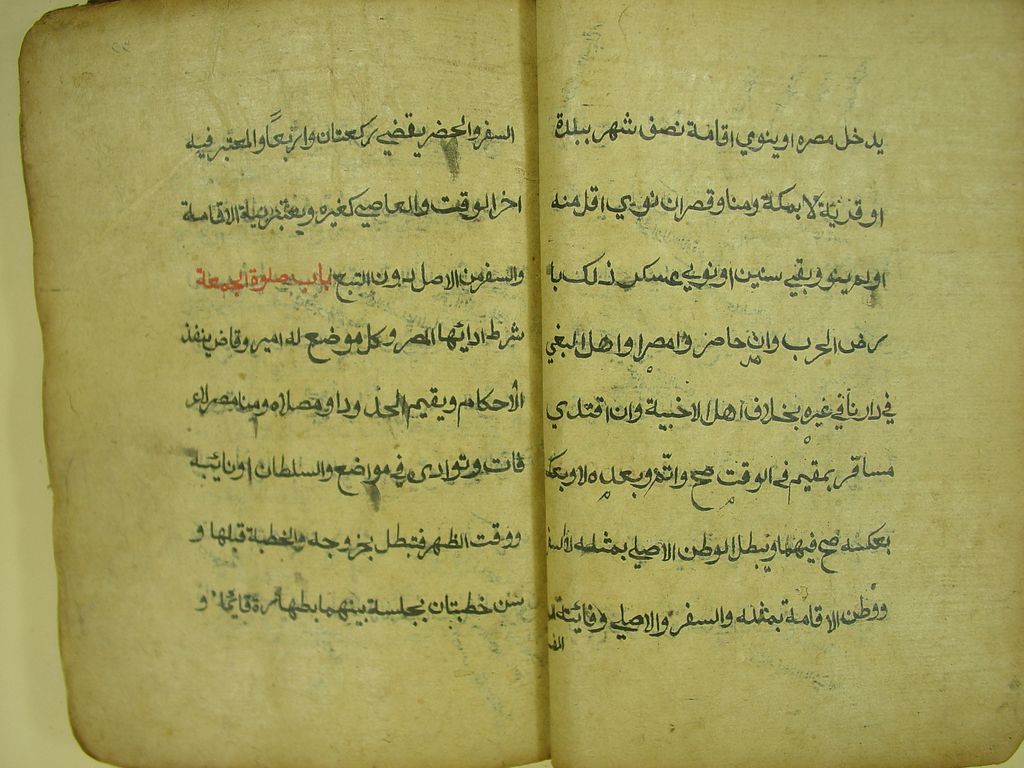 يدخل مصره او ينوي اقامة نصف شهر ببلدة
او قرية لا بمكة ومنا وقصر ان نوي اقل منه
او لم ينو وبقي سنين او نوي عسكر ذلك با
رض الحرب وان حاصروا مصرا او اهل البغي
في دارنا في غيره بخلاف اهل الاخبية وان اقتدي
مسافر بمقيم في الوقت صح واتم وبعده لا وبعكـ
بعكسه صح فيهما ويبطل الوطن الاصلي بمثله لا السفر
ووطن الاقامة بمثله والسفر والاصلي وفائتة
السفر
السفر والحضر يقضي ركعتان واربعاً والمعتبر فيه
اخر الوقت والعاصي كغيره ويعتبر نية الاقامة
والسفر من الاصل لدون التبع باب صلوة الجمعة
شرط ادائها المصر وكل موضع له امير وقاض ينفذ
الأحكام ويقيم الحدود او مصلاه ومنا مصر لا عر
فات وتؤدى في مواضع والسلطان او نائبه
ووقت الظهر فتبطل بخروجه والخطبة قبلها و
سن خطبتان بجلسة بينهما بطهارة قائما و